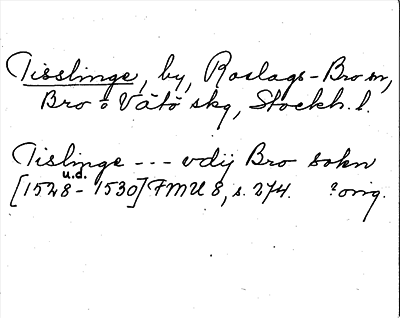 Tisslinge, by, Roslags-Bro sn,
Bro o Vätö skg, Stockh. l.
Tislinge --- vdij Bro sokn
u.d.
[1528 - 1530] FMU 8, s. 274. ?orig.